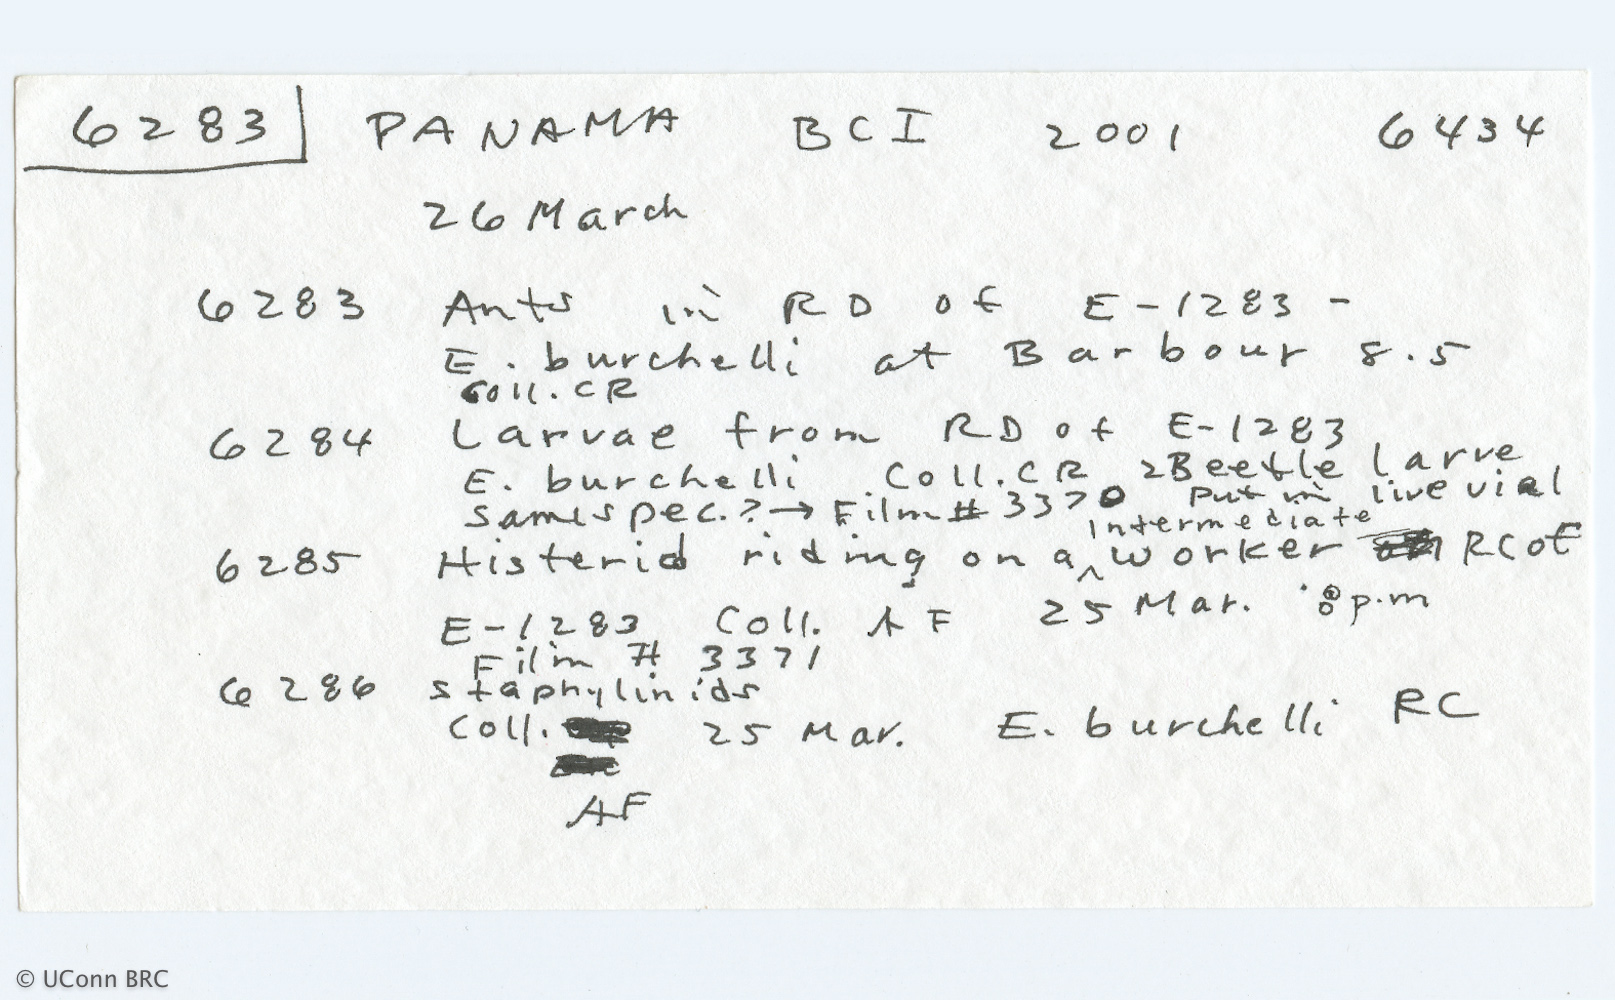 6283 PANAMA BCI 2001 6434
26 March
6283 Ants in RD of E-1283 -
E. burchelli at Barbour 8.5
Coll. CR
6284 Larvae from RD of E-1283
E. burchelli Coll. CR 2 Beetle larve
same spec.? → Film # 3370 put in live vial
intermediate
6285 Histerid riding on a ^ worker RC of
E-1283 Coll. AF 25 Mar. 8 p.m
Film # 3371
6286 staphylinids
Coll. 25 Mar. E. burchelli RC
AF
© UConn BRC